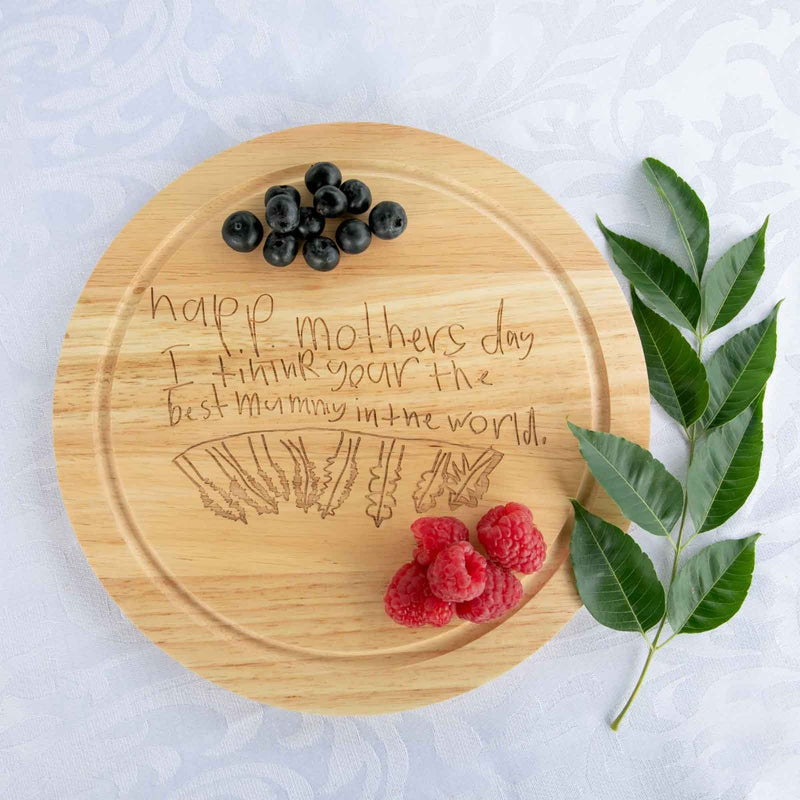 happ. mothers day
I think your the
best mummy in the world.